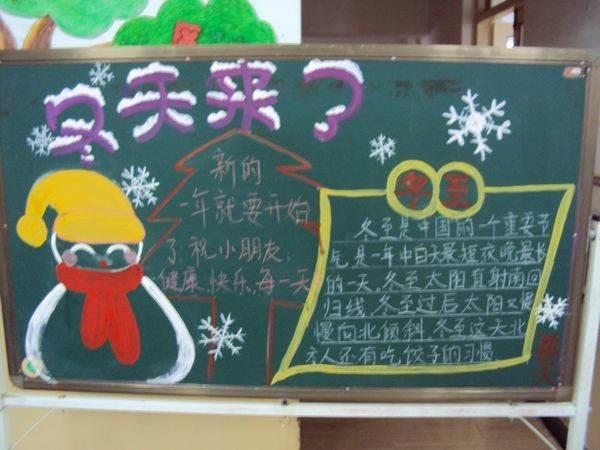 冬天来了
新的
一年就要开始
了,祝小朋友:
健康、快乐、每一天
冬至
冬至是中国的一个重要节
气,是一年中白天最短夜晚最长
的一天,冬至太阳直射南回
归线,冬至过后太阳又慢
慢向北倾斜.冬至这天北
方人还有吃饺子的习惯